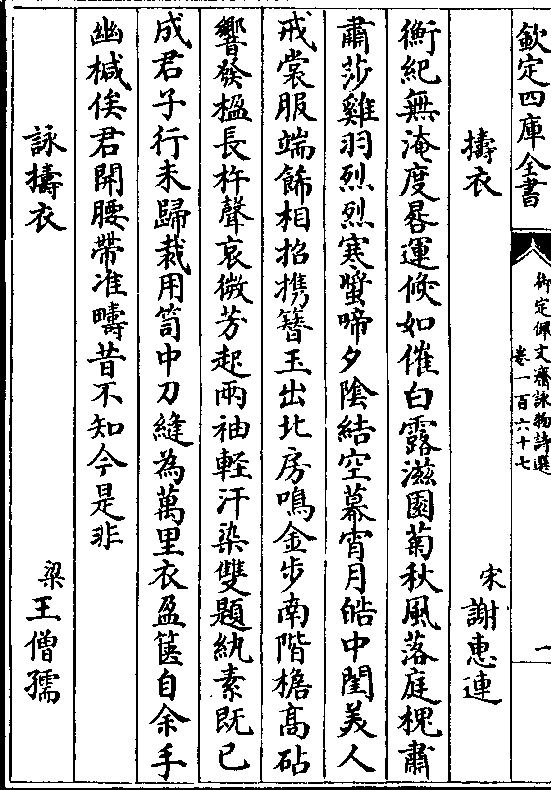 欽定四庫全書
御定佩文齋詠物詩選
卷一百六十七
一
擣衣
宋謝惠連
衡紀無淹度晷運倏如催白露滋園菊秋風落庭槐肅
肅莎雞羽烈烈寒螿啼夕陰結空幕宵月皓中閨美人
戒裳服端飾相招携簪玉出北房鳴金步南階櫩高砧
響發楹長杵聲哀微芳起兩袖輕汗染雙題紈素既已
成君子行未歸裁用笥中刀縫為萬里衣盈篋自余手
幽椷俟君開腰帶准疇昔不知今是非
詠擣衣
梁王僧孺